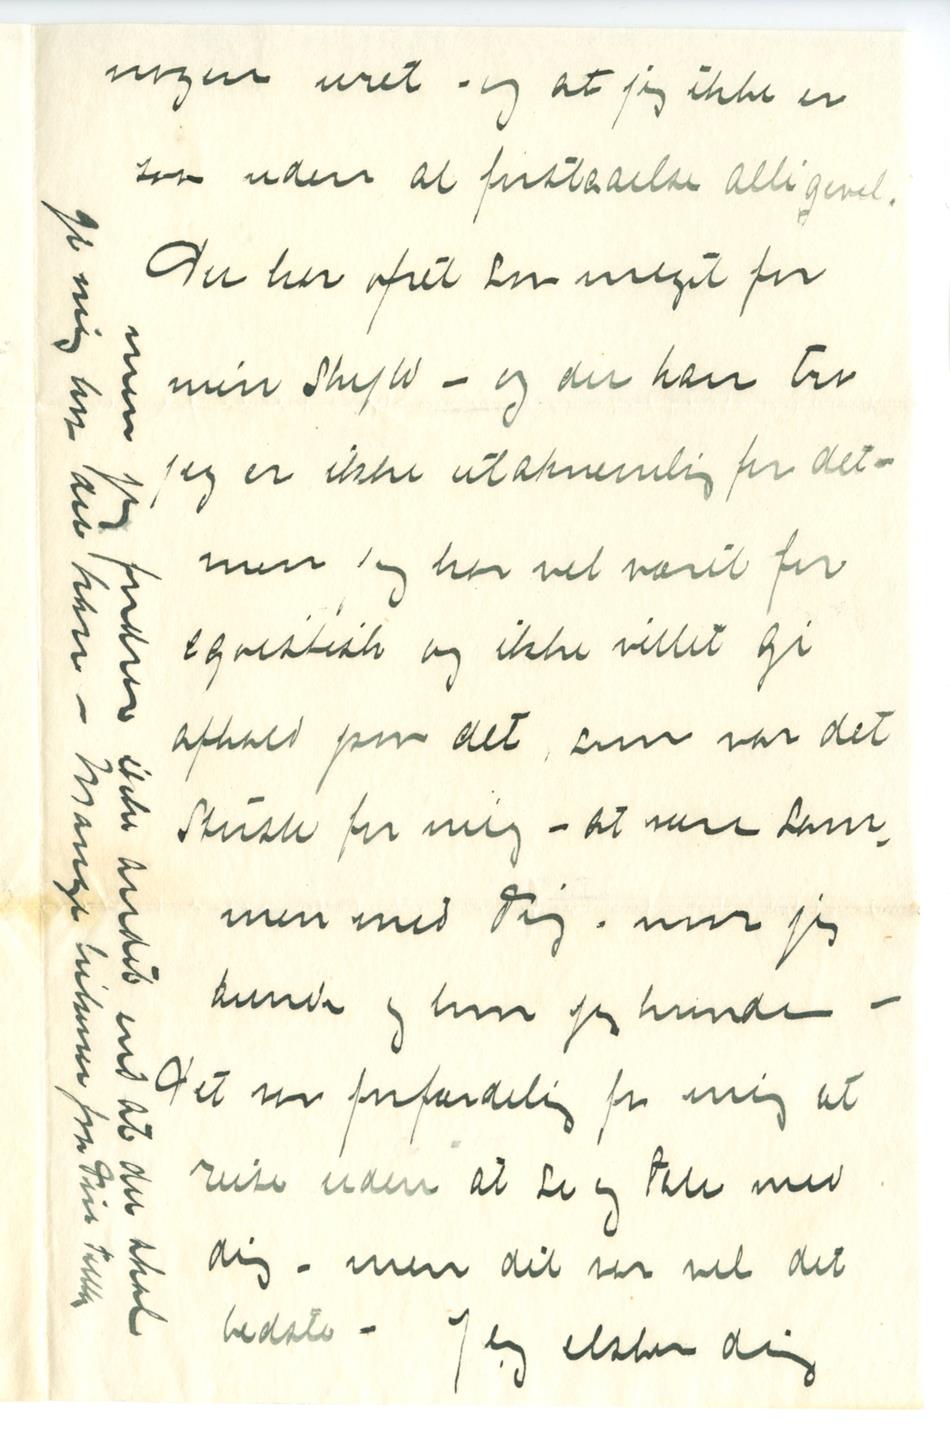 nogen uret - og at jeg ikke er
saa uden al forstaaelse alligevel.
Du har ofret saa meget for
min Skyld - og du kan tro
jeg er ikke utaknemlig for det -
men jeg har vel værit for
egoistisk og ikke villet gi
afkald paa det, som var det
Største for mig - at være sam-
men med Dig - naar jeg
kunde og hvor jeg kunde -
Det var forfærdelig for mig at
reise uden at se og tale med
dig - men det var vel det
bedste - Jeg elsker dig
men jeg fordrer ikke andet end at du skal
gi mig hvad du kan - Mange hilsener fra Din Tulla